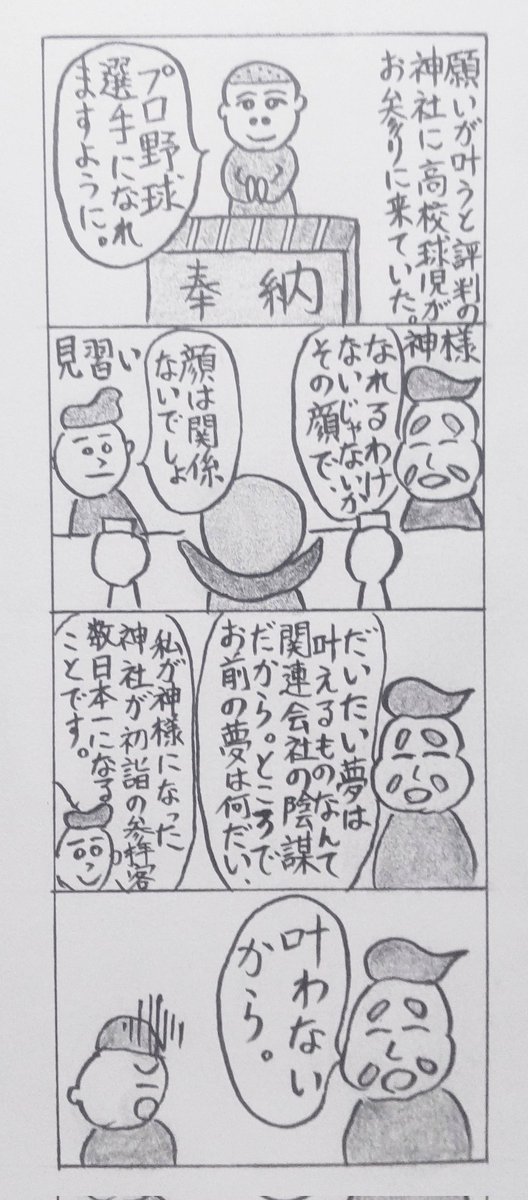 願いが叶うと評判の
神社に高校球児が
お参りに来ていた。
プロ野球
選手になれ
ますように。
奉納
神様
なれるわけ
ないじゃないか
その顔で、
顔は関係
ないでしょ
見習い
だいたい夢は
叶えるものなんて
関連会社の陰謀
だから。ところで
お前の夢は何だい、
私が神様になった
神社が初詣の参拝客
数日本一になる
ことです。
叶わない
から。